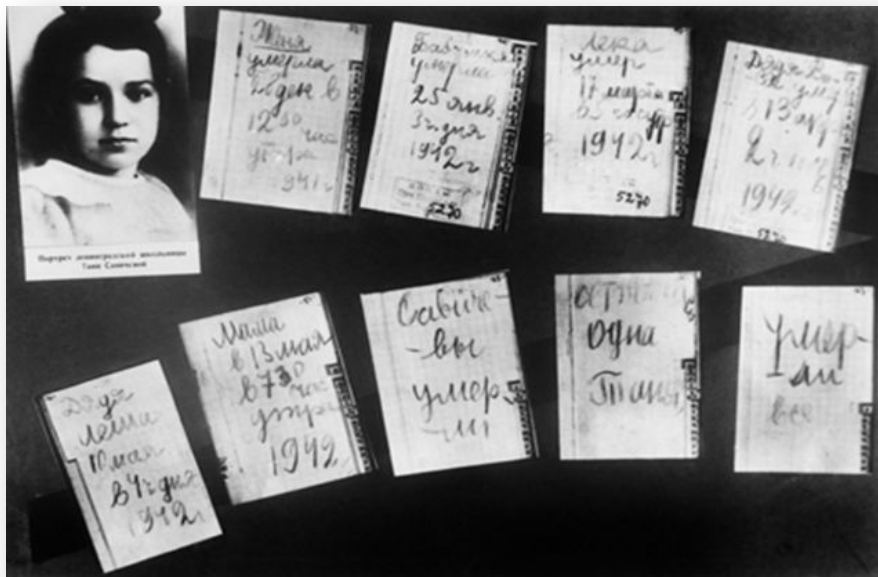 Портрет ленинградской школьницы
Тани Савичевой
Женя
умерла
28 дек в
12 30 час
утра
1941 г
Бабушка
умерла
25 янв.
3 ч. дня
1942 г
5270
Лека
умер
17 марта
в 5 час утр
1942 г
5270
Дядя Ва-
ся ум
в 13 апр
2 ч
1942 г
5270
Дядя
Леша
10 мая
в 4 ч дня
1942 г
Мама
в 13 мая
в 7 30
час
утра
1942 г
Савиче-
-вы
умер
-ли
осталась
одна
Таня
умер-
-ли
все